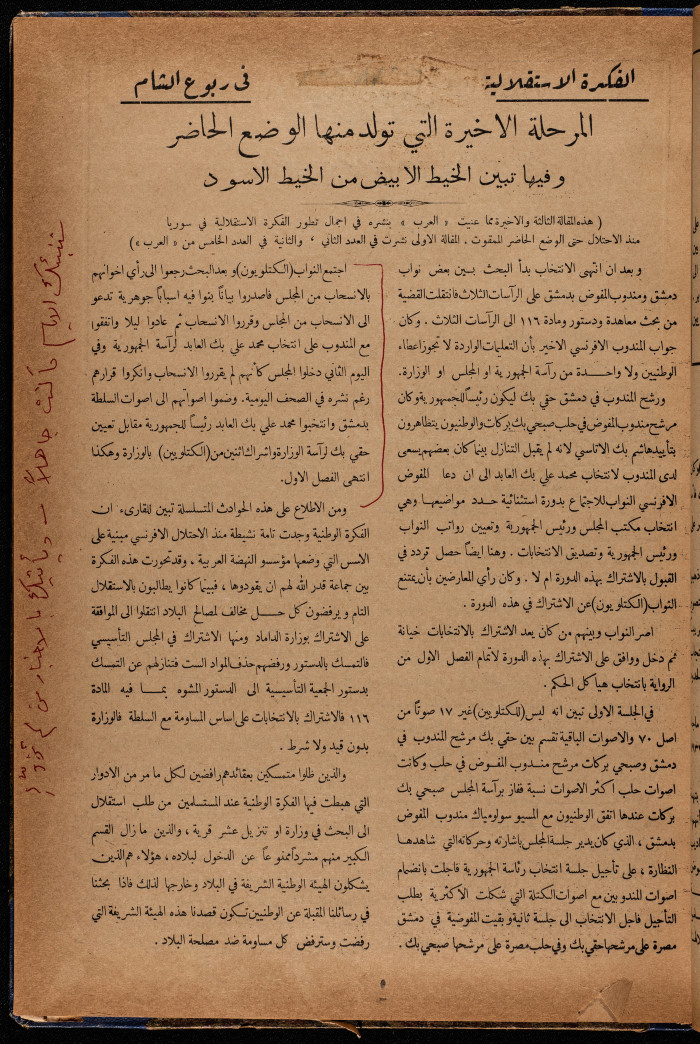 الفكرة الاستقلالية
فى ربوع الشام
المرحلة الاخيرة التي تولد منها الوضع الحاضر
وفيها تبين الخيط الابيض من الخيط الاسود
( هذه المقالة الثالثة والاخيرة مما عنيت « العرب » بنشره في اجمال تطور الفكرة الاستقلالية في سوريا
منذ الاحتلال حتى الوضع الحاضر الممقوت . المقالة الاولى نشرت في العدد الثاني ، والثانية في العدد الخامس من « العرب »)
وبعد ان انتهى الانتخاب بدأ البحث بين بعض نواب
دمشق ومندوب المفوض بدمشق على الرآسات الثلاث فانتقلت القضية
من بحث معاهدة ودستور ومادة ١١٦ الى الرآسات الثلاث . وكان
جواب المندوب الافرنسي الاخير بأن التعليمات الواردة لا تجوز اعطاء
الوطنيين ولا واحدة من رآسة الجمهورية او المجلس او الوزارة.
ورشح المندوب في دمشق حقي بك ليكون رئيساً للجمهورية وكان
مرشح مندوب المفوض في حلب صبحي بك بركات والوطنيون يتظاهرون
بتأييد هاشم بك الاتاسي لانه لم يقبل التنازل بينما كان بعضهم يسعى
لدى المندوب لانتخاب محمد علي بك العابد الى ان دعا المفوض
الافرنسي النواب للاجتماع بدورة استثنائية حدد مواضيعها وهي
انتخاب مكتب المجلس ورئيس الجمهورية وتعيين رواتب النواب
ورئيس الجمهورية وتصديق الانتخابات . وهنا ايضاً حصل تردد في
القبول بالاشتراك بهذه الدورة ام لا . وكان رأي المعارضين بأن يمتنع
النواب (الكتلويون) عن الاشتراك في هذه الدورة .
اصر النواب وبينهم من كان يعد الاشتراك بالانتخابات خيانة
ثم دخل ووافق على الاشتراك بهذه الدورة لاتمام الفصل الاول من
الرواية بانتخاب هياكل الحكم .
في الجلسة الاولى تبين انه ليس (للكتلويين) غير ١٧ صوتاً من
اصل ٧٠ والاصوات الباقية تقسم بين حقي بك مرشح المندوب في
دمشق وصبحي بركات مرشح مندوب المفوض في حلب وكانت
اصوات حلب اكثر الاصوات نسبة ففاز برآسة المجلس صبحي بك
بركات عندها اتفق الوطنيون مع المسيو سولومياك مندوب المفوض
بدمشق ، الذي كان يدير جلسة المجلس باشارته وحركاته التي شاهدها
النظارة ، على تأجيل جلسة انتخاب رئاسة الجمهورية فاجلت بانضمام
اصوات المندوبين مع اصوات الكتلة التي شكلت الاكثرية بطلب
التأجيل فاجل الانتخاب الى جلسة ثانية وبقيت المفوضية في دمشق
مصرة على مرشحها حقي بك وفي حلب مصرة على مرشحها صبحي بك .
اجتمع النواب (الكتلويون) وبعد البحث رجعوا الى رأي اخوانهم
بالانسحاب من المجلس فاصدروا بياناً بنوا فيه اسباباً جوهرية تدعو
الى الانسحاب من المجلس وقرروا الانسحاب ثم عادوا ليلا واتفقوا
مع المندوب على انتخاب محمد علي بك العابد لرآسة الجمهورية وفي
اليوم الثاني دخلوا المجلس كأنهم لم يقرروا الانسحاب وانكروا قرارهم
رغم نشره في الصحف اليومية. وضموا اصواتهم الى اصوات السلطة
بدمشق وانتخبوا محمد علي بك العابد رئيساً للجمهورية مقابل تعيين
حقي بك لرآسة الوزارة واشراك اثنين من (الكتلويين) بالوزارة وهكذا
انتهى الفصل الاول.
ومن الاطلاع على هذه الحوادث المتسلسلة تبين للقارىء ان
الفكرة الوطنية وجدت تامة نشيطة منذ الاحتلال الافرنسي مبنية على
الاسس التي وضعها مؤسسو النهضة العربية ، وقد تحورت هذه الفكرة
بين جماعة قدر الله لهم ان يقودوها ، فبينما كانوا يطالبون بالاستقلال
التام و يرفضون كل حل مخالف لمصالح البلاد انتقلوا الى الموافقة
على الاشتراك بوزارة الداماد ومنها الاشتراك في المجلس التأسيسي
فالتمسك بالدستور ورفضهم حذف المواد الست فتنازلهم عن التمسك
بدستور الجمعية التأسيسية الى الدستور المشوه بما فيه المادة
١١٦ فالاشتراك بالانتخابات على اساس المساومة مع السلطة فالوزارة
بدون قيد ولا شرط .
والذين ظلوا متمسكين بعقائدهم رافضين لكل ما مر من الادوار
التي هبطت فيها الفكرة الوطنية عند المستسلمين من طلب استقلال
الى البحث في وزارة او تنزيل عشر قرية ، والذين ما زال القسم
الكبير منهم مشرداً ممنوعاً عن الدخول لبلاده ، هؤلاء هم الذين
يشكلون الهيئة الوطنية الشريفة في البلاد وخارجها لذلك فاذا بحثنا
في رسائلنا المقبلة عن الوطنيين تكون قصدنا هذه الهيئة الشريفة التي
رفضت وسترفض كل مساومة ضد مصلحة البلاد .
ستنبئك الايام ما كنت جاهلاً ويأتيك بالاخبار من لم تزود